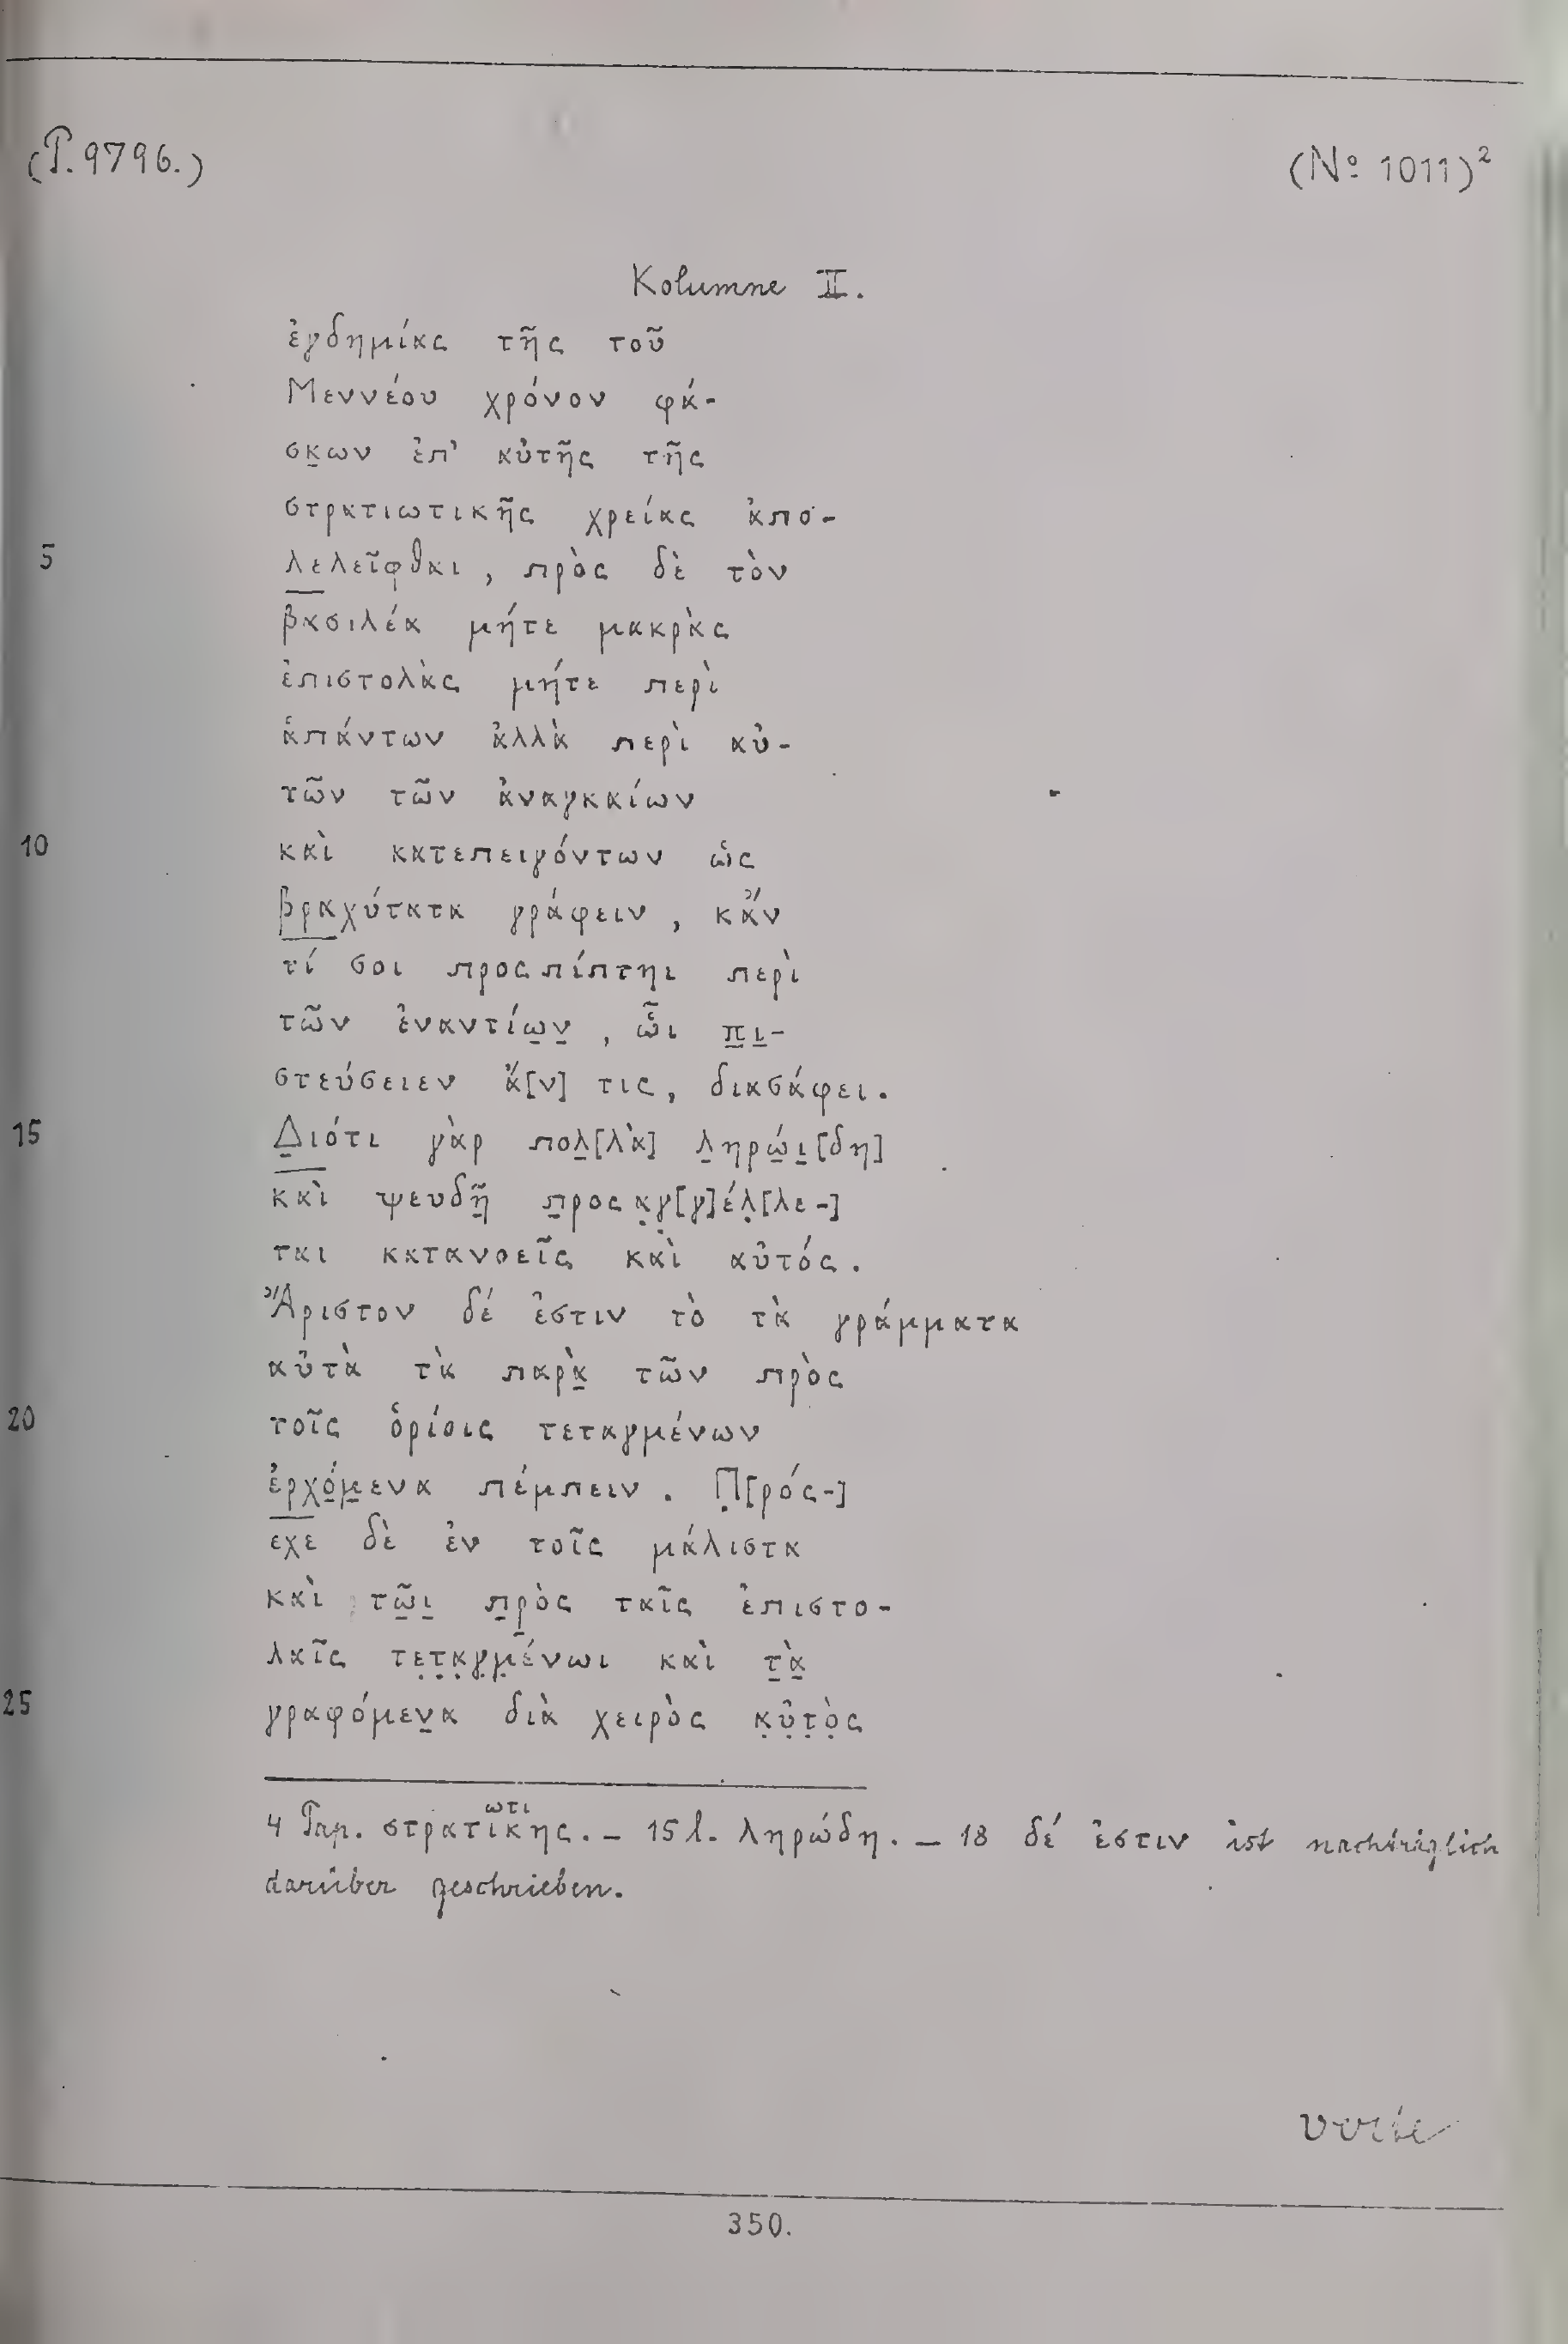 (P. 9796.) (No 1011)²
Kolumne II.
ἐγδημίας τῆς τοῦ
Μεννέου χρόνον φά-
σκων ἐπ' αὐτῆς τῆς
στρατιωτικῆς χρείας ἀπο-
5 λελεῖφθαι, πρὸς δὲ τὸν
βασιλέα μήτε μακρὰς
ἐπιστολὰς μήτε περὶ
ἁπάντων ἀλλὰ περὶ αὐ-
τῶν τῶν ἀναγκαίων
10 καὶ κατεπειγόντων ὡς
βραχύτατα γράφειν, κἄν
τί σοι προςπίπτηι περὶ
τῶν ἐναντίω̣ν̣, ὧι π̣ι̣-
στεύσειεν ἄ[ν] τις, διασάφει.
15 Δ̣ιότι γὰρ πολ̣[λὰ] λ̣ηρώ̣ι̣[δη]
καὶ ψευδῆ̣ π̣ροςα̣γ̣[γ]έλ̣[λε-]
ται κατανοεῖς καὶ αὐτός.
Ἄριστον δέ ἐστιν τὸ τὰ γράμματα
αὐτὰ τὰ παρὰ̣ τῶν πρὸς
20 τοῖς ὁρίοις τεταγμένων
ἐρχό̣μ̣ενα πέμπειν. Π̣[ρός-]
εχε δὲ ἐν τοῖς μάλιστα
καὶ τῶ̣ι̣ π̣ρ̣ὸς ταῖς ἐπιστο-
λαῖς τε̣τ̣α̣γ̣μ̣ένωι καὶ τ̣ὰ̣
25 γραφόμεν̣α διὰ χειρὸς α̣ὐ̣τ̣ὸ̣ς
4 Pap. στρατ`ωτι´ικης. – 15 l. ληρώδη. – 18 δέ ἐστιν ist nachträglich
darüber geschrieben.
350.